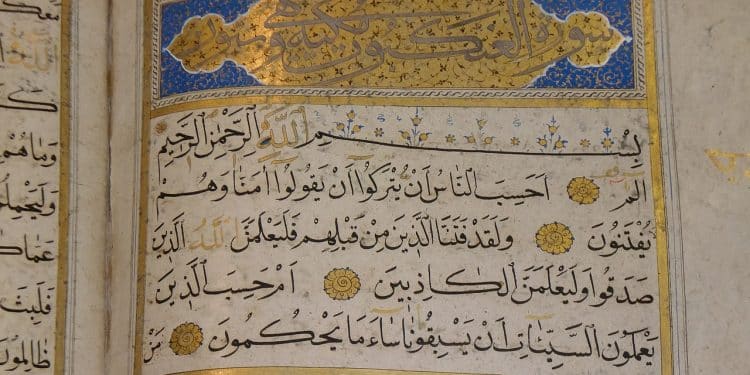 سورة العنكبوت مكية
بِسْمِ اللَّهِ الرَّحْمٰنِ الرَّحِيمِ
الم اَحَسِبَ النَّاسُ اَنْ يُتْرَكُوا اَنْ يَقُولُوا اٰمَنَّا وَهُمْ
يُفْتَنُونَ وَلَقَدْ فَتَنَّا الَّذِينَ مِنْ قَبْلِهِمْ فَلَيَعْلَمَنَّ اللَّهُ الَّذِينَ
صَدَقُوا وَلَيَعْلَمَنَّ الْكَاذِبِينَ اَمْ حَسِبَ الَّذِينَ
يَعْمَلُونَ السَّيِّئَاتِ اَنْ يَسْبِقُونَا سَاءَ مَا يَحْكُمُونَ مَنْ
وَمَاهُمْ
وَلَيَحْمِلُنَّ
فَلَبِثَ
ظَالِمُونَ